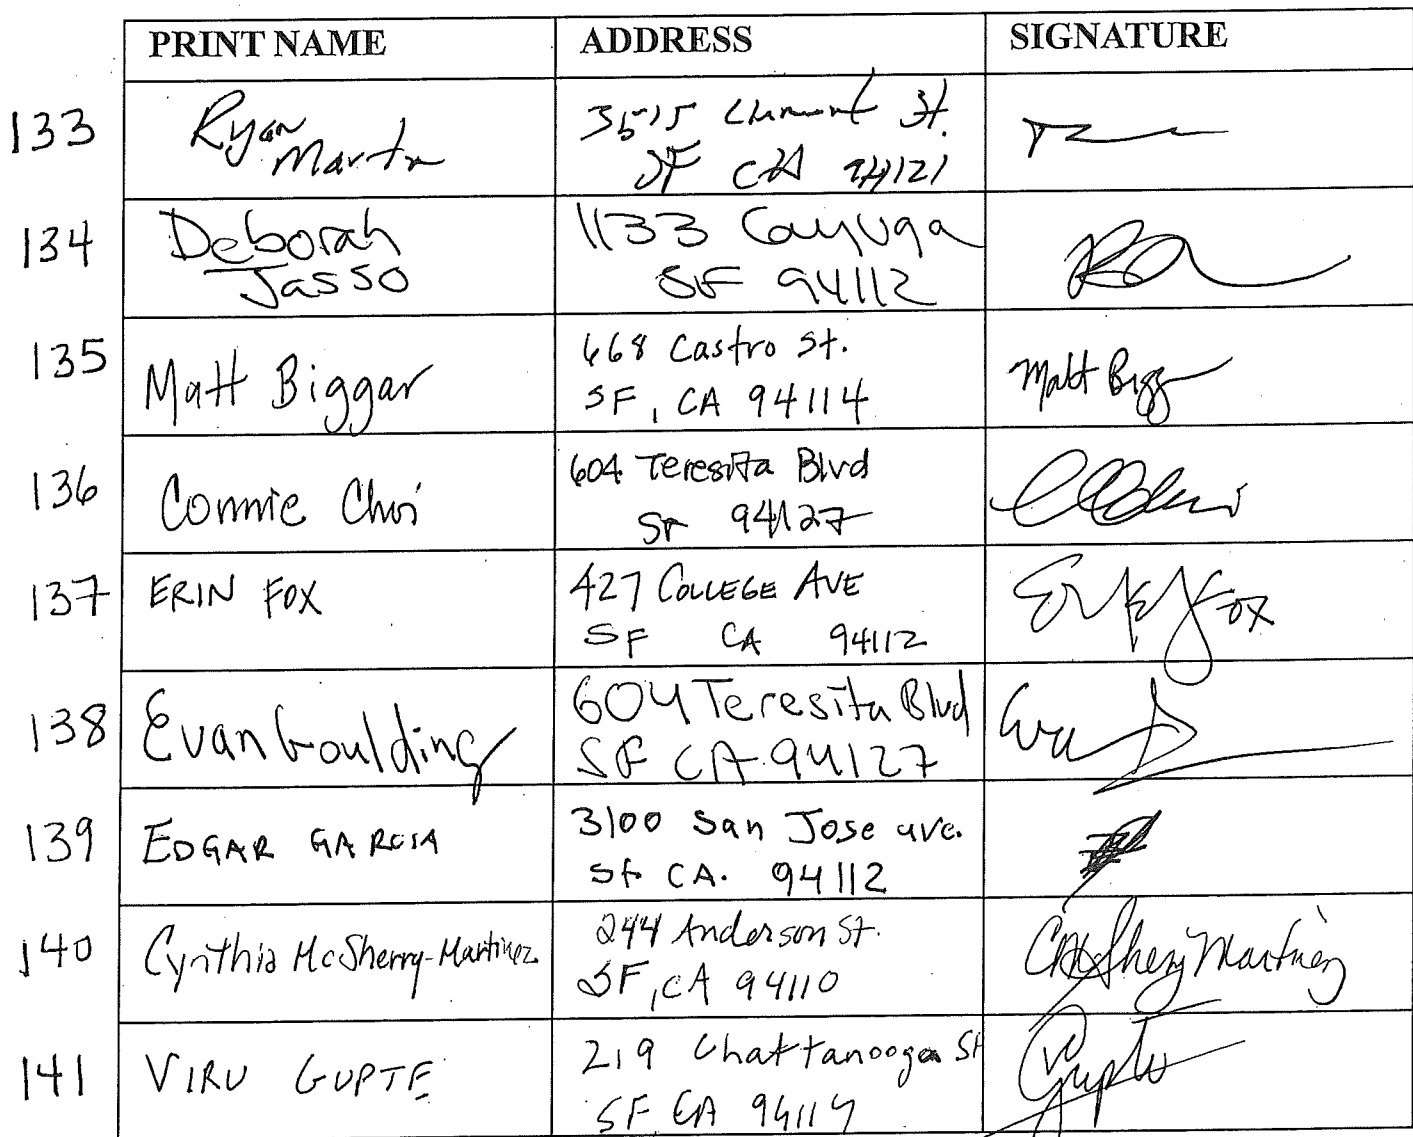 PRINT NAME ADDRESS SIGNATURE
133 Ryan Martin 3515 Clement St.
SF CA 94121
134 Deborah Jasso 1133 Cayuga
SF 94112
135 Matt Biggar 668 Castro St.
SF, CA 94114 Matt Bigg
136 Connie Choi 604 Teresita Blvd
SF 94127
137 ERIN FOX 427 COLLEGE AVE
SF CA 94112 Fox
138 Evan Goulding 604 Teresita Blvd
SF CA 94127
139 EDGAR GARCIA 3100 San Jose ave.
SF CA. 94112
140 Cynthia McSherry-Martinez 244 Anderson St.
SF, CA 94110 Martinez
141 VIRU GUPTE 219 Chattanooga St
SF CA 94114 Gupte